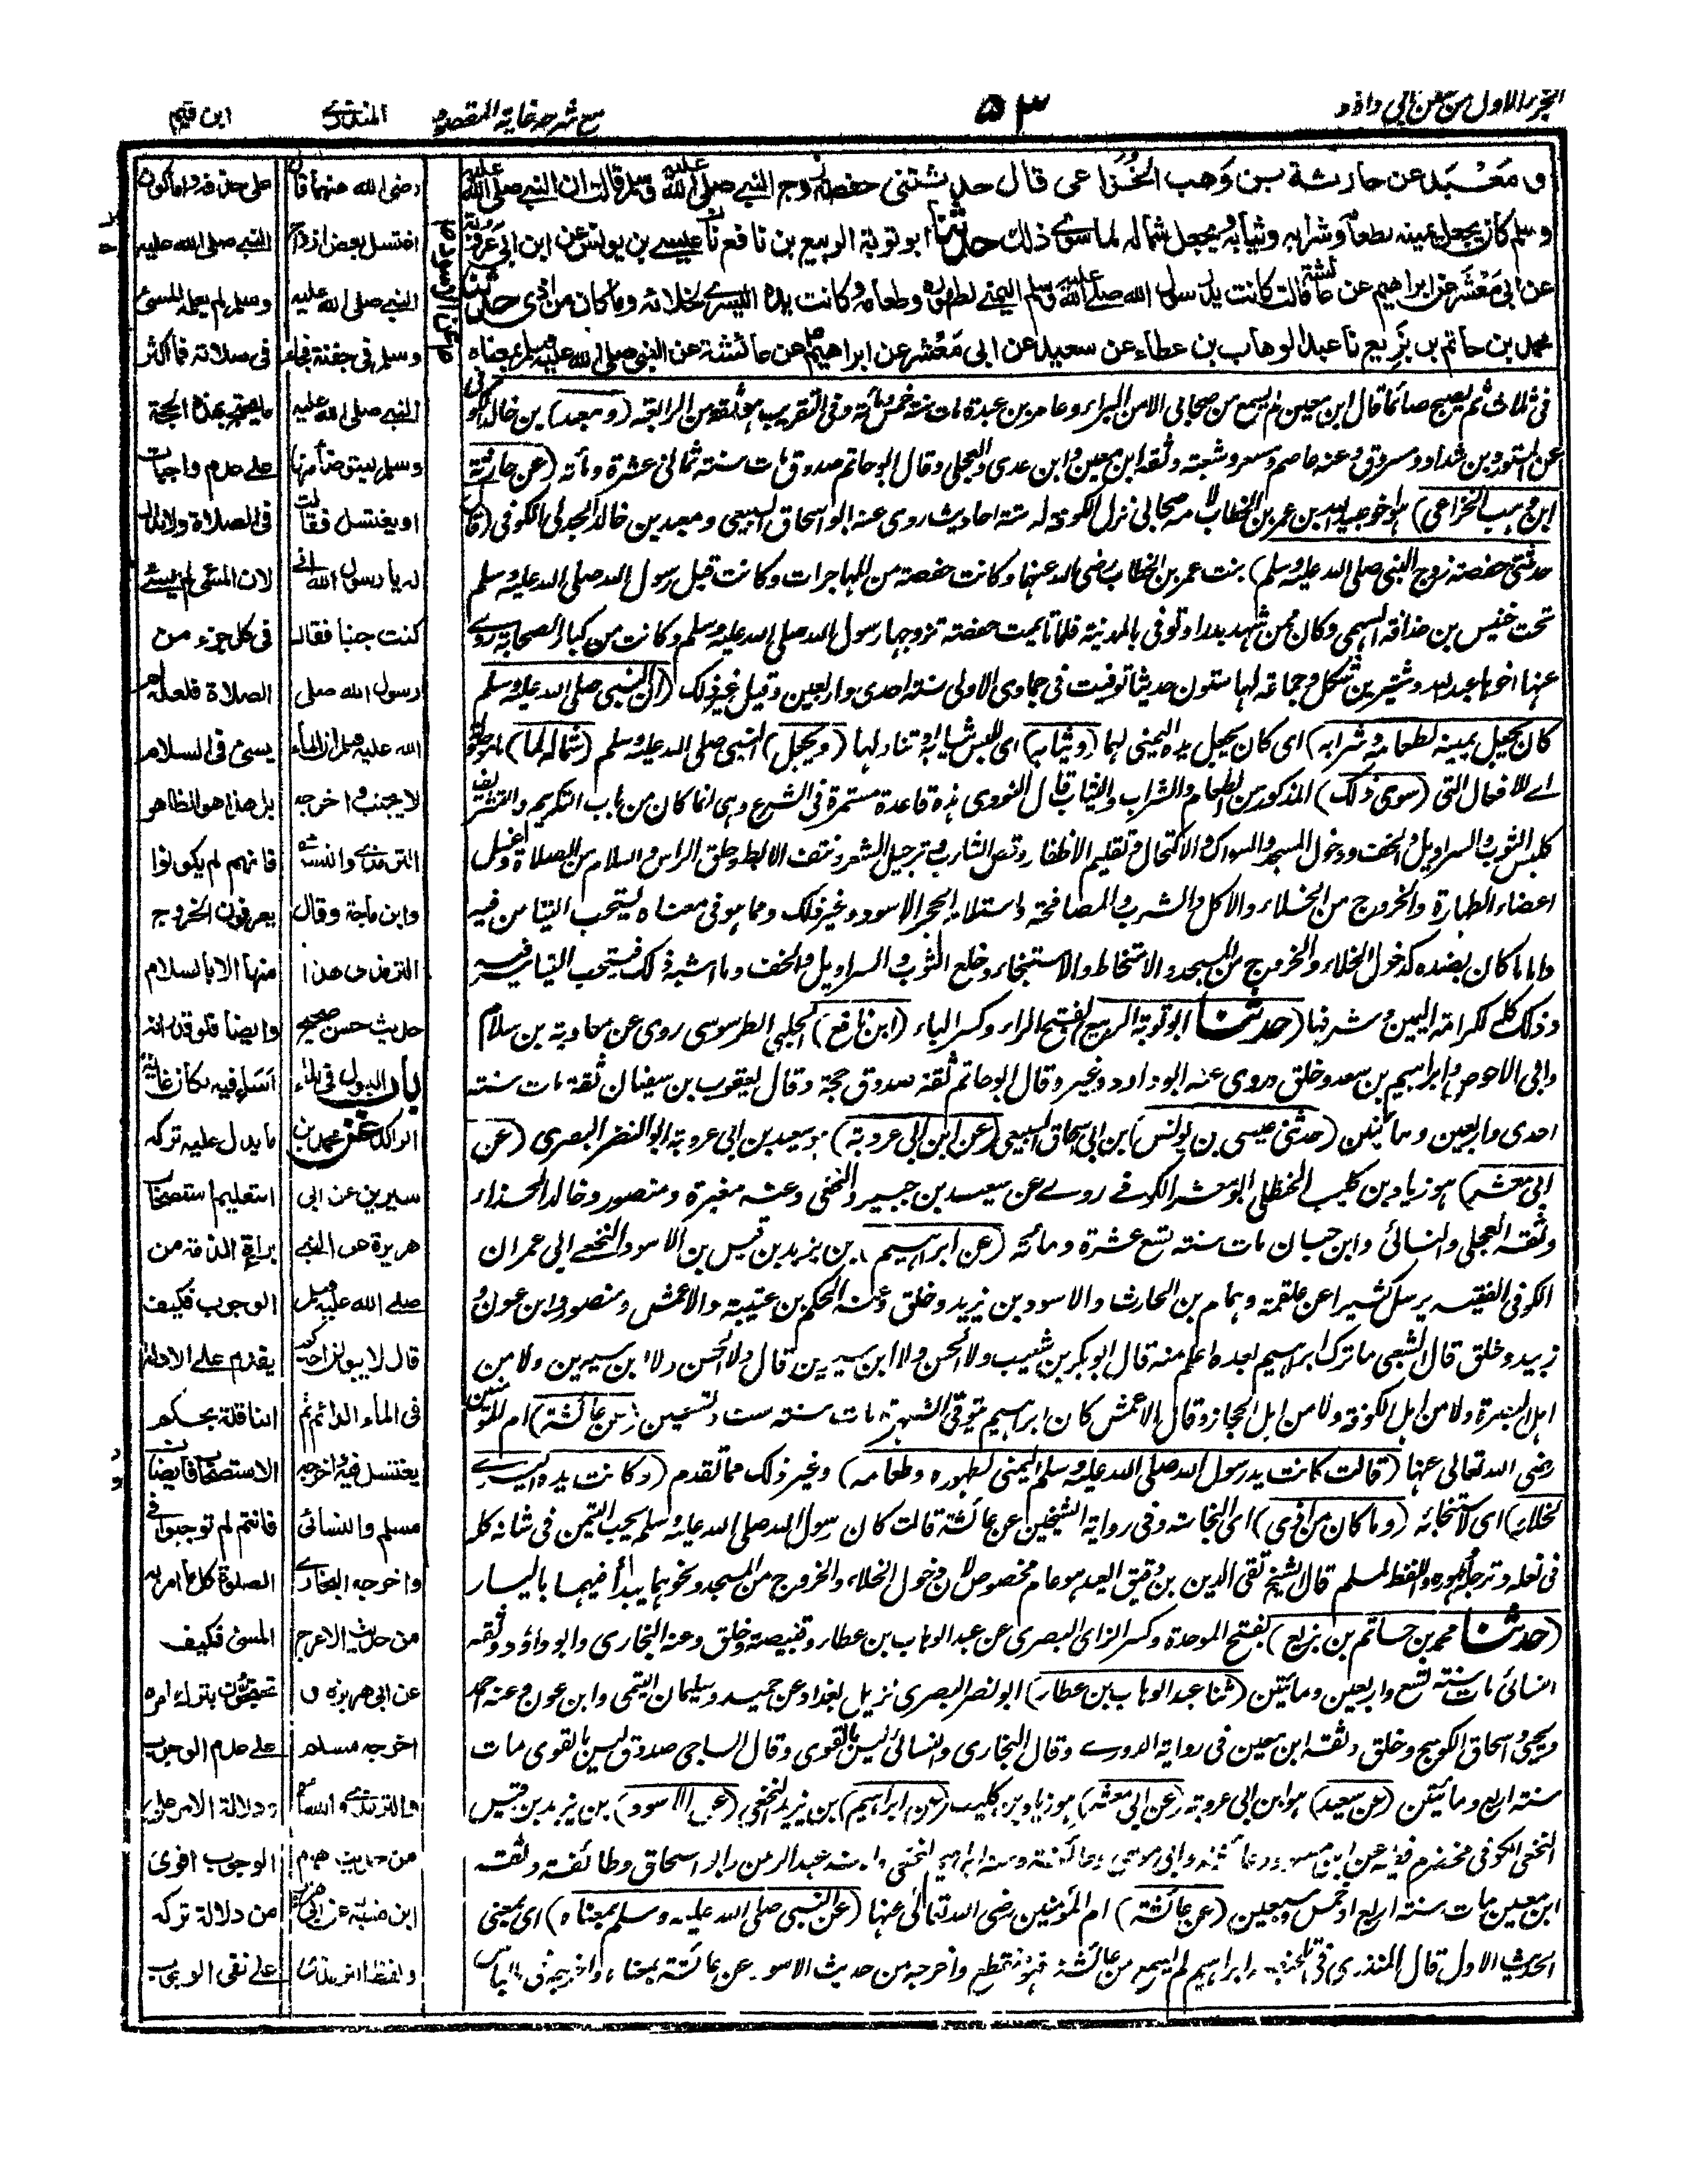 الجزء الاول من سنن ابي داؤد
۵۳
مع شرحه غاية المقصود
المنذري
ابن قيم
ومَعْبَد عن حارثة بن وَهب الخُزاعى قال حدثتنى حفصة زوج النبي صلى الله عليه وسلم قالت ان النبي صلى الله عليه
وسلم كان يجعل يمينه لطعامه وشرابه وثيابه ويجعل شماله لما سوى ذلك حدثنا ابو توبة الربيع بن نافع نا عيسى بن يونس عن ابن ابى عروبة
عن ابى مَعْشَر عن ابراهيم عن عائشة قالت كانت يد رسول الله صلى الله عليه وسلم اليمنى لطهوره وطعامه وكانت يده اليسرى لخلائه وما كان من اذى حدثنا
محمد بن حاتم بن بَزِيع نا عبد الوهاب بن عطاء عن سعيد عن ابى مَعْشر عن ابراهيم عن عائشة عن النبي صلى الله عليه وسلم بمعناه
فى ثلاث ثم يصبح صائما قال ابن معين لم يسمع من صحابى الا من البراء وعامر بن عبدة مات سنة خمس ومائة وفى التقريب موثقه من الرابعة (ومعبد) بن خالد الكوفى
عن المستورد بن شداد ومسروق وعنه عاصم ومسعر وشعبة وثقه ابن معين وابن عدى والعجلى وقال ابو حاتم صدوق مات سنة ثمانى عشرة ومائة (عن حارثة
ابن وهب الخزاعى) هو اخو عبيد الله بن عمر بن الخطاب لامه صحابى نزل الكوفة له ستة احاديث روى عنه ابو اسحاق السبيعى ومعبد بن خالد الجدلى الكوفى (قال
حدثتنى حفصة زوج النبى صلى الله عليه وسلم) بنت عمر بن الخطاب رضى الله عنهما وكانت حفصة من المهاجرات وكانت قبل رسول الله صلى الله عليه وسلم
تحت خنيس بن حذافة السهمى وكان ممن شهد بدرا وتوفى بالمدينة فلما تأيمت حفصة تزوجها رسول الله صلى الله عليه وسلم وكانت من كبار الصحابة روى
عنها اخوها عبد الله وشتير بن شكل وجماعة لها ستون حديثا توفيت فى جماوى الاولى سنة احدى واربعين وقيل غير ذلك (ان النبى صلى الله عليه وسلم
كان يجعل يمينه لطعامه وشرابه) اى كان يجعل يده اليمنى لهما (وثيابه) اى للبس ثيابه او تناولها (ويجعل) النبى صلى الله عليه وسلم (شماله لما)
اے للافعال التى (سوى ذلك) المذكور من الطعام والشراب والثياب قال النووى هذه قاعدة مستمرة فى الشرع وهى انما كان من باب التكريم والتشريف
كلبس الثوب والسراويل والخف ودخول المسجد والسواك والاكتحال وتقليم الاظفار وقص الشارب وترجيل الشعر ونتف الابط وحلق الراس والسلام من الصلاة وغسل
اعضاء الطهارة والخروج من الخلاء والاكل والشرب والمصافحة واستلام الحجر الاسود وغير ذلك ومما هو فى معناه يستحب التيامن فيه
واما ما كان بضده كدخول الخلاء والخروج من المسجد والامتخاط والاستنجاء وخلع الثوب والسراويل والخف وما اشبه ذلك فيستحب التياسر فيه
وذلك كله لكرامة اليمين وشرفها (حدثنا ابو توبة الربيع) بفتح الراء وكسر الباء (ابن نافع) الحلبى الطرسوسى روى عن معاوية بن سلام
وابى الاحوص وابراهيم بن سعد وخلق وروى عنه ابو داود وغيره وقال ابو حاتم ثقة صدوق حجة وقال يعقوب بن سفيان ثقة مات سنة
احدى واربعين ومائتين (حدثنى عيسى بن يونس) ابن ابى اسحاق السبيعى (عن ابن ابى عروبة) هو سعيد بن ابى عروبة ابو النضر البصرى (عن
ابى معشر) هو زياد بن كليب الحنظلى ابو معشر الكوفے روے عن سعيد بن جبير والنخعى وعنه مغيرة ومنصور وخالد الحذاء
وثقه العجلى والنسائى وابن حبان مات سنة تسع عشرة ومائة (عن ابراهيم) بن يزيد بن قيس بن الاسود النخعے ابى عمران
الكوفى الفقيه يرسل كثيرا عن علقمة وهمام بن الحارث والاسود بن يزيد وخلق وعنه الحكم بن عتيبة والاعمش ومنصور وابن عون و
زبيد وخلق قال الشعبى ما ترك ابراهيم بعده اعلم منه قال ابو بكر بن شعيب ولا الحسن ولا ابن سيرين قال ولا الحسن ولا ابن سيرين ولا من
اهل البصرة ولا من اهل الكوفة ولا من اهل الحجاز وقال الاعمش كان ابراهيم يتوقى الشهرة مات سنة ست وتسعين (عن عائشة) ام المؤمنين
رضى الله تعالى عنها (قالت كانت يد رسول الله صلى الله عليه وسلم اليمنى لطهوره وطعامه) وغير ذلك مما تقدم (وكانت يده اليسرى
لخلائه) اى لاستنجائه (وما كان من اذى) اى النجاسة وفى رواية الشيخين عن عائشة قالت كان رسول الله صلى الله عليه وسلم يحب التيمن فى شانه كله
فى نعله وترجله وطهوره واللفظ لمسلم قال الشيخ تقى الدين بن دقيق العيد هو عام مخصوص لان دخول الخلاء والخروج من المسجد ونحوهما يبدأ فيهما باليسار
(حدثنا محمد بن حاتم بن بزيع) بفتح الموحدة وكسر الزاى البصرى عن عبد الوهاب بن عطاء وقبيصة وخلق وعنه البخارى وابو داؤد ووثقه
النسائى مات سنة تسع واربعين ومائتين (ثنا عبد الوهاب بن عطاء) ابو نصر البصرى نزيل بغداد عن حميد وسليمان التيمى وابن عون وعنه احمد
ويحيى واسحاق الكوسج وخلق وثقه ابن معين فى رواية الدورے وقال البخارى والنسائى ليس بالقوى وقال الساجى صدوق ليس بالقوى مات
سنة اربع ومائتين (عن سعيد) هو ابن ابى عروبة (عن ابى معشر) هو زياد بن كليب (عن ابراهيم) بن يزيد النخعى (عن الاسود) بن يزيد بن قيس
النخعى الكوفى مخضرم فقيه عن ابن مسعود وعائشة وابى موسى وعنه ابراهيم النخعى وابنه عبد الرحمن وابو اسحاق وطائفة وثقه
ابن معين مات سنة اربع او خمس وسبعين (عن عائشة) ام المؤمنين رضى الله تعالى عنها (عن النبى صلى الله عليه وسلم بمعناه) اى بمعنى
الحديث الاول قال المنذرى فى ابراهيم لم يسمع من عائشة فهو منقطع واخرجه من حديث الاسود عن عائشة بمعناه واخرجه فى اللباس
رضى الله عنهما قال
اغتسل بعض ازواج
النبي صلى الله عليه
وسلم فى جفنة فجاء
النبي صلى الله عليه
وسلم ليتوضأ منها
او يغتسل فقالت
له يا رسول الله انى
كنت جنبا فقال
رسول الله صلى
الله عليه وسلم ان الماء
لا يجنب واخرجه
الترمذى والنسائى
وابن ماجة وقال
الترمذى هذا
حديث حسن صحيح
باب البول فى الماء
الراكد عن محمد بن
سيرين عن ابى
هريرة عن النبى
صلى الله عليه وسلم
قال لا يبولن احدكم
فى الماء الدائم ثم
يغتسل فيه واخرجه
مسلم والنسائى
واخرجه البخارى
من حديث الاعرج
عن ابى هريرة و
اخرجه مسلم
والترمذى والنسائى
من حديث همام
ابن منبه عن ابى هريرة
ولفظ الترمذى
النبى صلى الله عليه
وسلم لم يعلمه المسئ
فى صلاته فما اكثر
ما يحتج بهذه الحجة
على عدم واجبات
فى الصلاة ولا يدل
لان المسئ لم يسئ
فى كل جزء من
الصلاة فلعله لم
يسئ فى السلام
بل هذا هو الظاهر
فانهم لم يكونوا
يعرفون الخروج
منها الا بالسلام
وايضا فلو قدر انه
اساء فيه لكان غايته
ما يدل عليه تركه
التعليم استصحاب
براءة الذمة من
الوجوب فكيف
يقدم على الادلة
الناقلة بحكم
الاستصحاب وايضا
فانتم لم توجبوا فى
الصلوة كل ما امر به
المسئ فكيف
تحتجون بترك امره
على عدم الوجوب
ودلالة الامر على
الوجوب اقوى
من دلالة تركه
على نفى الوجوب